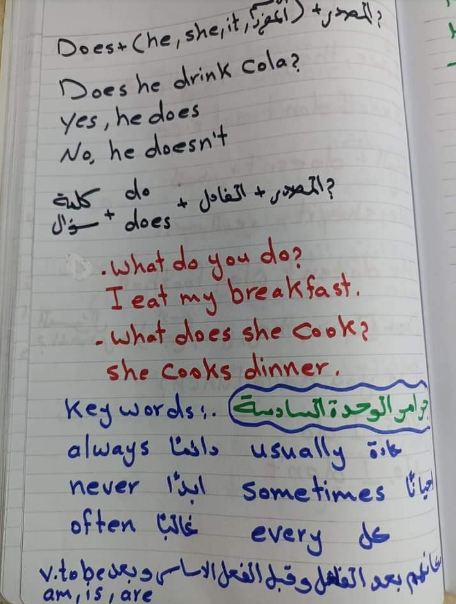 Does + (he, she, it, المفرد) + المصدر?
Does he drink Cola?
Yes, he does
No, he doesn't
كلمة سؤال + do does + الفاعل + المصدر?
. What do you do?
I eat my breakfast.
- What does she cook?
she cooks dinner.
Key words:. جرامر الوحدة السادسة
always دائمًا usually عادة
never ابدًا sometimes احيانًا
often غالبًا every كل
بعد الفاعل وقبل الفعل الاساسي وبعد v.to be
am, is, are